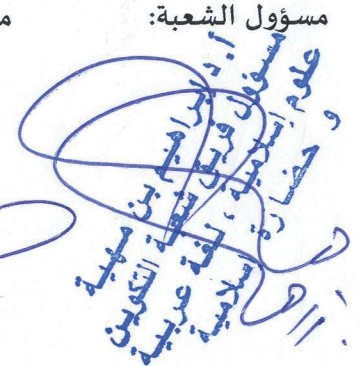 مسؤول الشعبة:
أ. د/ إبراهيم بن مهية
مسؤول فريق شعبة التكوين
علوم إسلامية، لغة عربية
و حضارة إسلامية